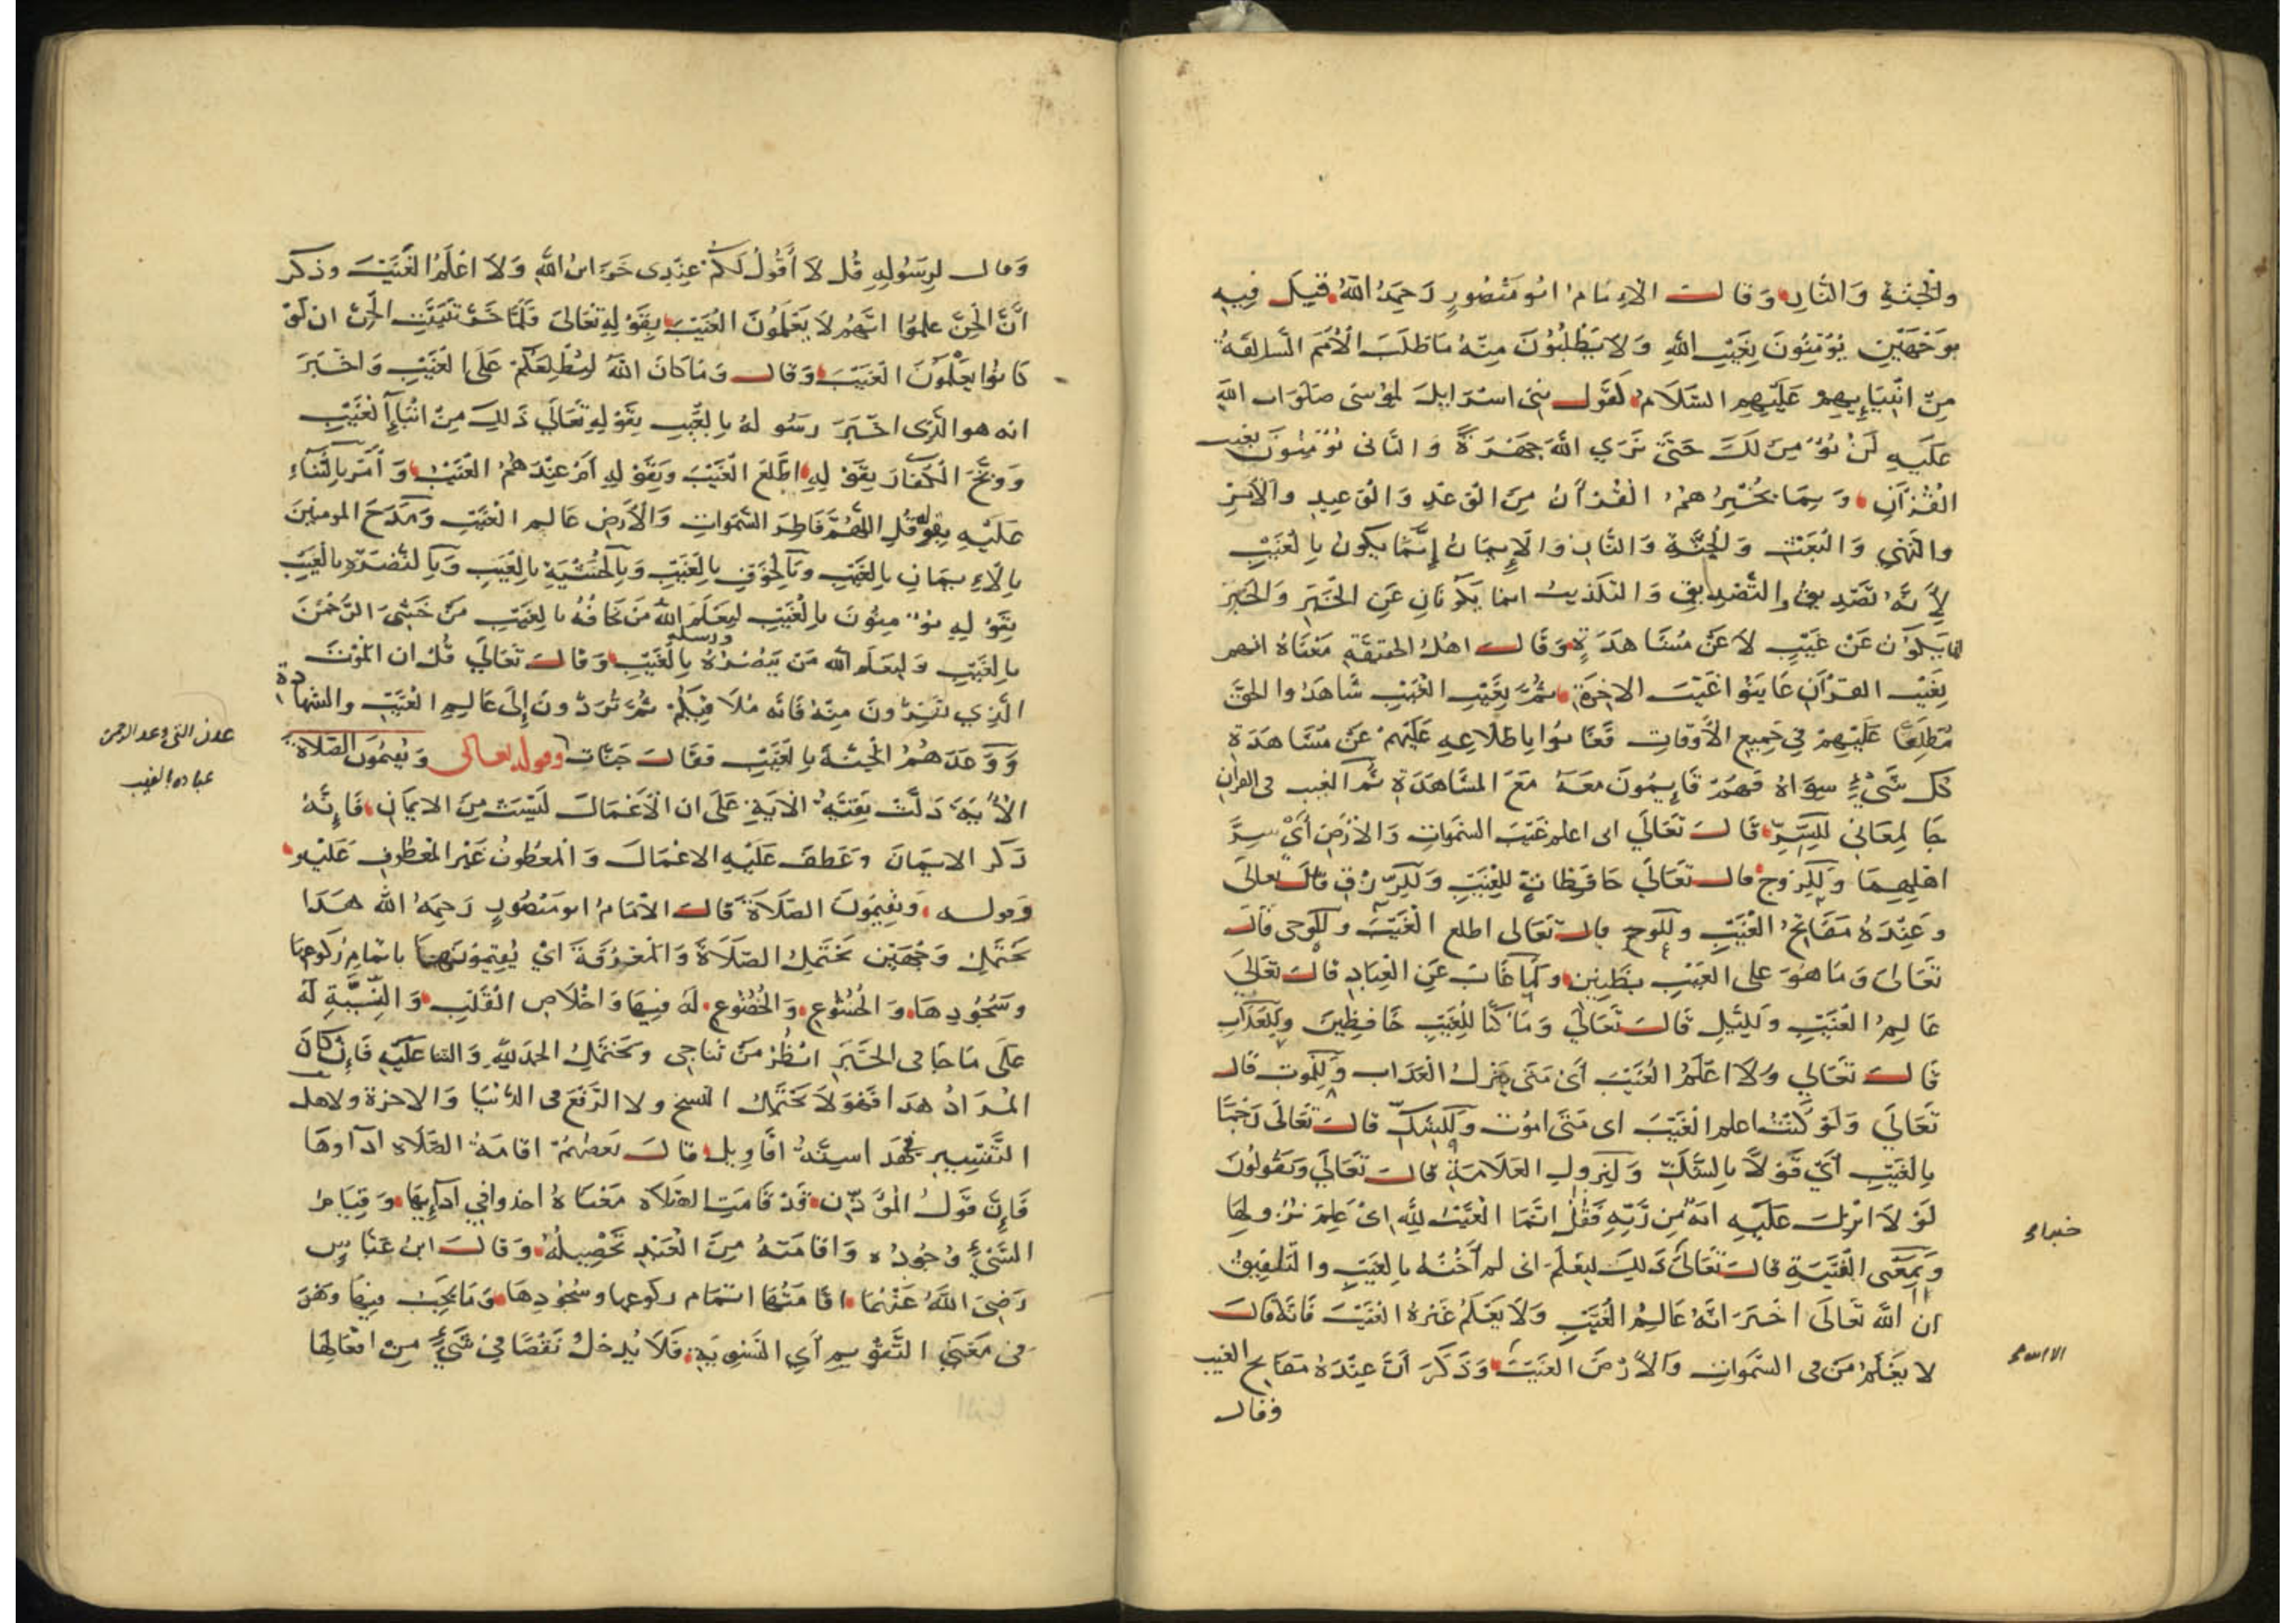 والجنة والنار وقال الإمام ابو منصور رحمه الله قيل فيه
بوجهين يؤمنون بغيب الله ولا يطلبون منه ما طلب الأمم السالفة
من انبيايهم عليهم السلام كقول بنى اسرايل لموسى صلوات الله
عليه لن نؤمن لك حتى نرى الله جهرة والثانى يؤمنون بغيب
القرآن وبما يخبرهم القرآن من الوعد والوعيد والأمر
والنهي والبعث والجنة والنار والإيمان إنما يكون بالغيب
لأنه تصديق والتصديق والتكذيب انما يكونان عن الخبر والخبر
انما يكون عن غيب لا عن مشاهدة وقال اهل الحقيقة معناه انهم
بغيب القرآن عاينوا غيب الاخرة ثم بغيب الغيب شاهدوا الحق
مطلعا عليهم في جميع الأوقات فغابوا باطلاعه عليهم عن مشاهدة
كل شيء سواه فهم قايمون معه مع المشاهدة ثم الغيب فى القران
جا لمعاني للسر قال تعالي انى اعلم غيب السموات والأرض أي سر
اهلهما وللزوج قال تعالي حافظات للغيب وللرزق قال تعالى
وعنده مفاتح الغيب وللوح قال تعالى اطلع الغيب وللوحى قال
تعالى وما هو على الغيب بظنين ولما غاب عن العباد قال تعالى
عالم الغيب ولليل قال تعالي وما كنا للغيب حافظين وللعذاب
قال تعالي ولا اعلم الغيب أي متى ينزل العذاب وللموت قال
تعالي ولو كنت اعلم الغيب اى متى اموت وللشك قال تعالى رجما
بالغيب أي قولا بالشك ولنزول العلامة قال تعالي ويقولون
لولا انزل عليه اية من ربه فقل انما الغيب لله اي علم نزولها
وبمعنى الغيبة قال تعالى ذلك ليعلم انى لم أخنه بالغيب والتلفيق
ان الله تعالى اخبر انه عالم الغيب ولا يعلم غيره الغيب فانه قال
لا يعلم من فى السموات والأرض الغيب وذكر أن عنده مفاتح الغيب
وقال
وقال لرسوله قل لا أقول لكم عندى خزاين الله ولا اعلم الغيب وذكر
أن الجن علموا انهم لا يعلمون الغيب بقوله تعالى فلما خر تبينت الجن ان لو
كانوا يعلمون الغيب وقال وما كان الله ليطلعكم على الغيب واخبر
انه هو الذى اخبر رسوله بالغيب بقوله تعالي ذلك من انباء الغيب
ووبخ الكفار بقوله اطلع الغيب وبقوله ام عندهم الغيب وأمر بالثناء
عليه بقوله قل اللهم فاطر السموات والأرض عالم الغيب ومدح المومنين
بالايمان بالغيب وبالخوف بالغيب وبالخشية بالغيب وبالنصرة بالغيب
بقوله يؤمنون بالغيب ليعلم الله من يخافه بالغيب من خشى الرحمن
بالغيب وليعلم الله من ينصره ورسله بالغيب وقال تعالي قل ان الموت
الذي تفرون منه فانه ملاقيكم ثم تردون إلى عالم الغيب والشهادة
ووعدهم الجنة بالغيب فقال جنات وقوله تعالى ويقيمون الصلاة
عدن التى وعد الرحمن
عباده بالغيب
الأية دلت بقية الاية على ان الأعمال ليست من الايمان فإنه
ذكر الايمان وعطف عليه الاعمال والمعطوف غير المعطوف عليه
وقوله ويقيمون الصلاة قال الامام ابو منصور رحمه الله هذا
يحتمل وجهين يحتمل الصلاة والمعروفة اي يقيمونها باتمام ركوعها
وسجودها والخشوع والخضوع له فيها واخلاص القلب والنية له
على ما جا فى الخبر انظر من تناجى ويحتمل الحمد لله والثنا عليه فإن كان
المراد هذا فهو لا يحتمل النسخ ولا الرفع فى الدنيا والاخرة ولاهل
التفسير في هذا ستة اقاويل قال بعضهم اقامة الصلاة اداوها
فإن قول المؤذن قد قامت الصلاة معناه اخذوا في ادايها وقيام
الشيء وجوده واقامته من العبد تحصيله وقال ابن عباس
رضى الله عنهما اقامتها اتمام ركوعها وسجودها وما يجب فيها وهو
من معني التقويم أي التسوية فلا يدخل نقصا في شيء من افعالها